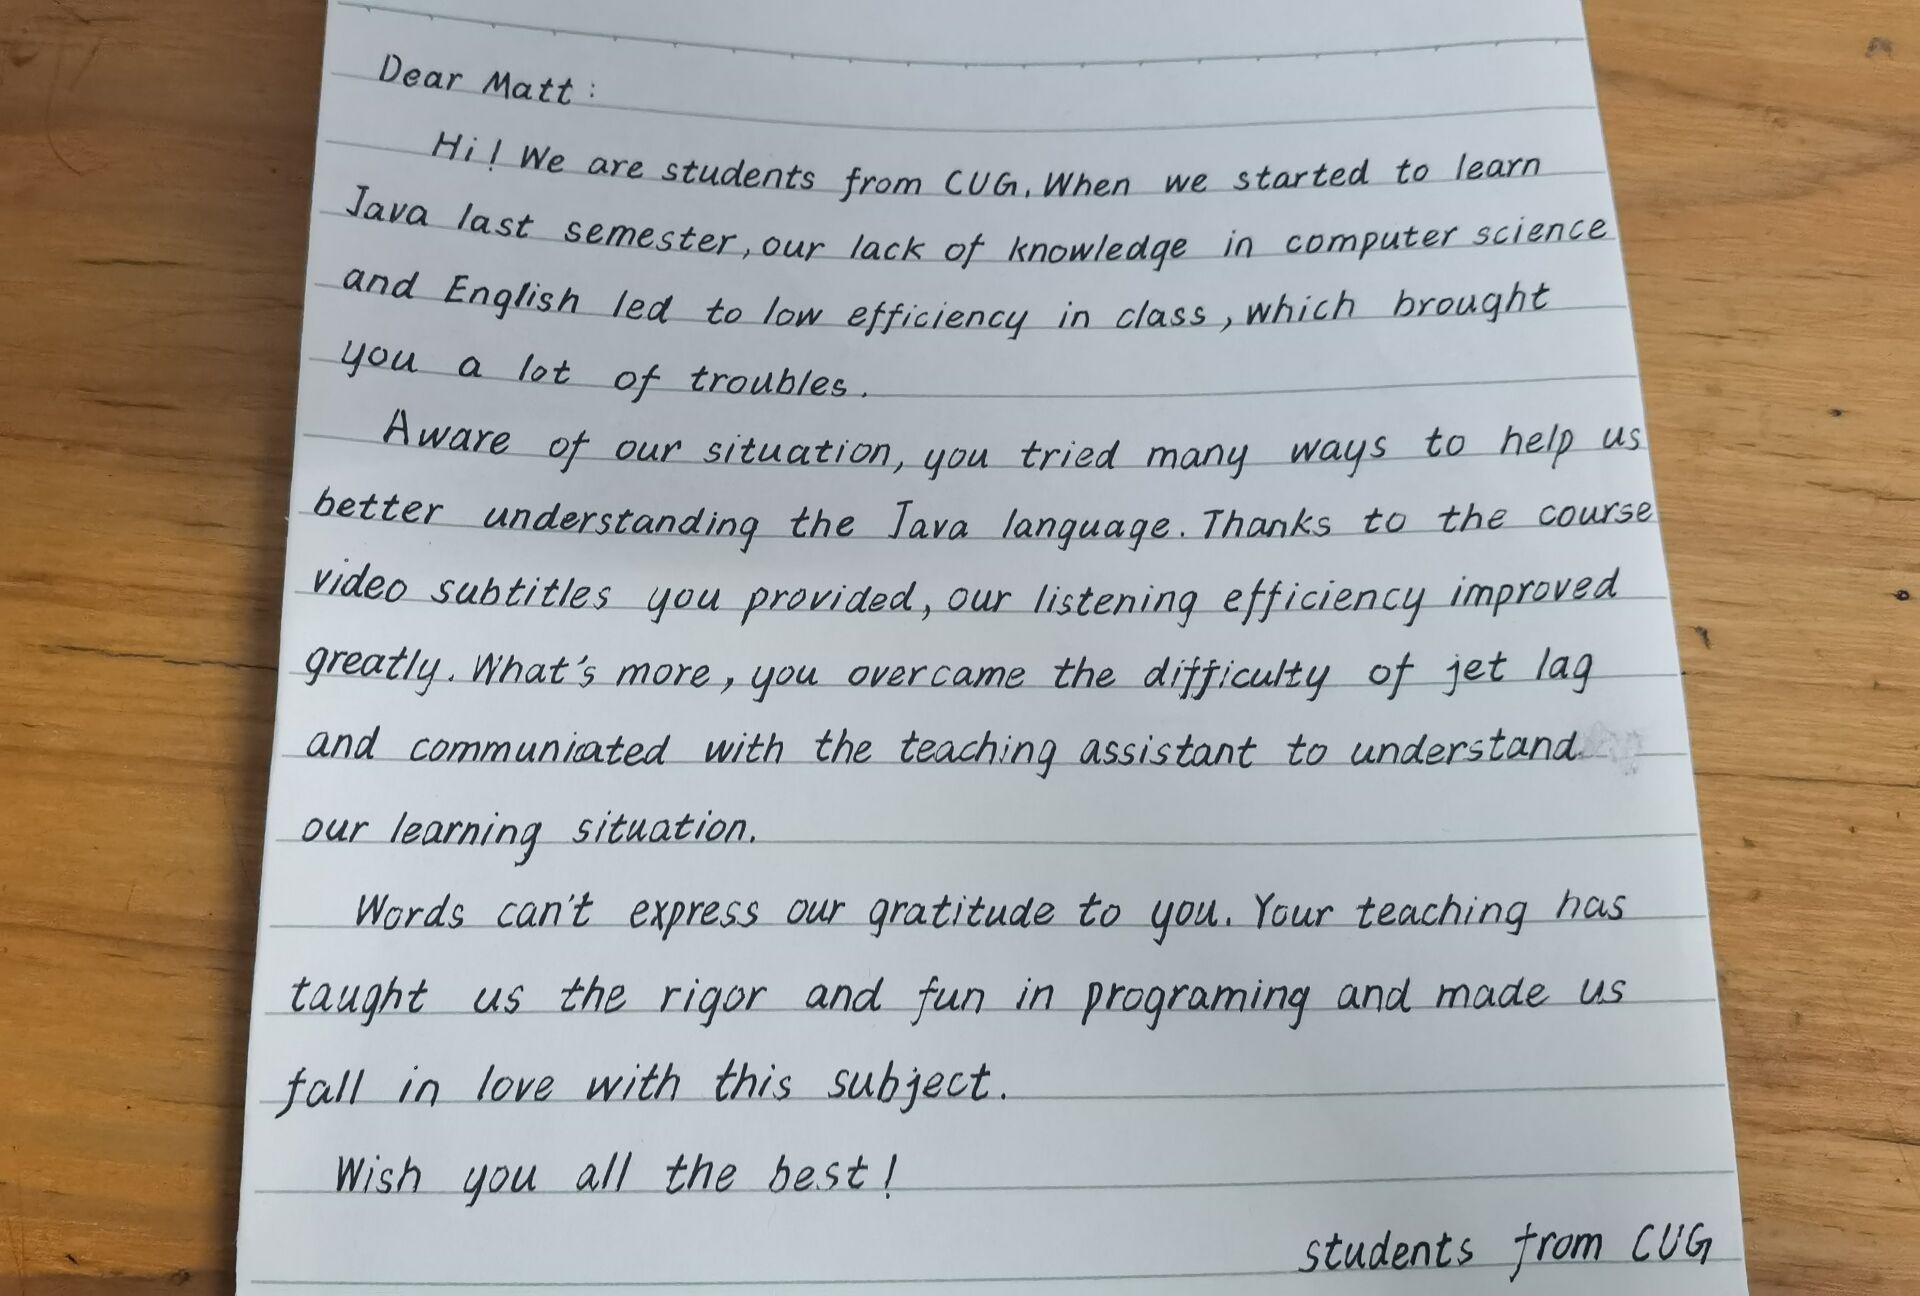 Dear Matt:
Hi! We are students from CUG. When we started to learn
Java last semester, our lack of knowledge in computer science
and English led to low efficiency in class, which brought
you a lot of troubles.
Aware of our situation, you tried many ways to help us
better understanding the Java language. Thanks to the course
video subtitles you provided, our listening efficiency improved
greatly. What's more, you overcame the difficulty of jet lag
and communicated with the teaching assistant to understand
our learning situation.
Words can't express our gratitude to you. Your teaching has
taught us the rigor and fun in programing and made us
fall in love with this subject.
Wish you all the best!
students from CUG